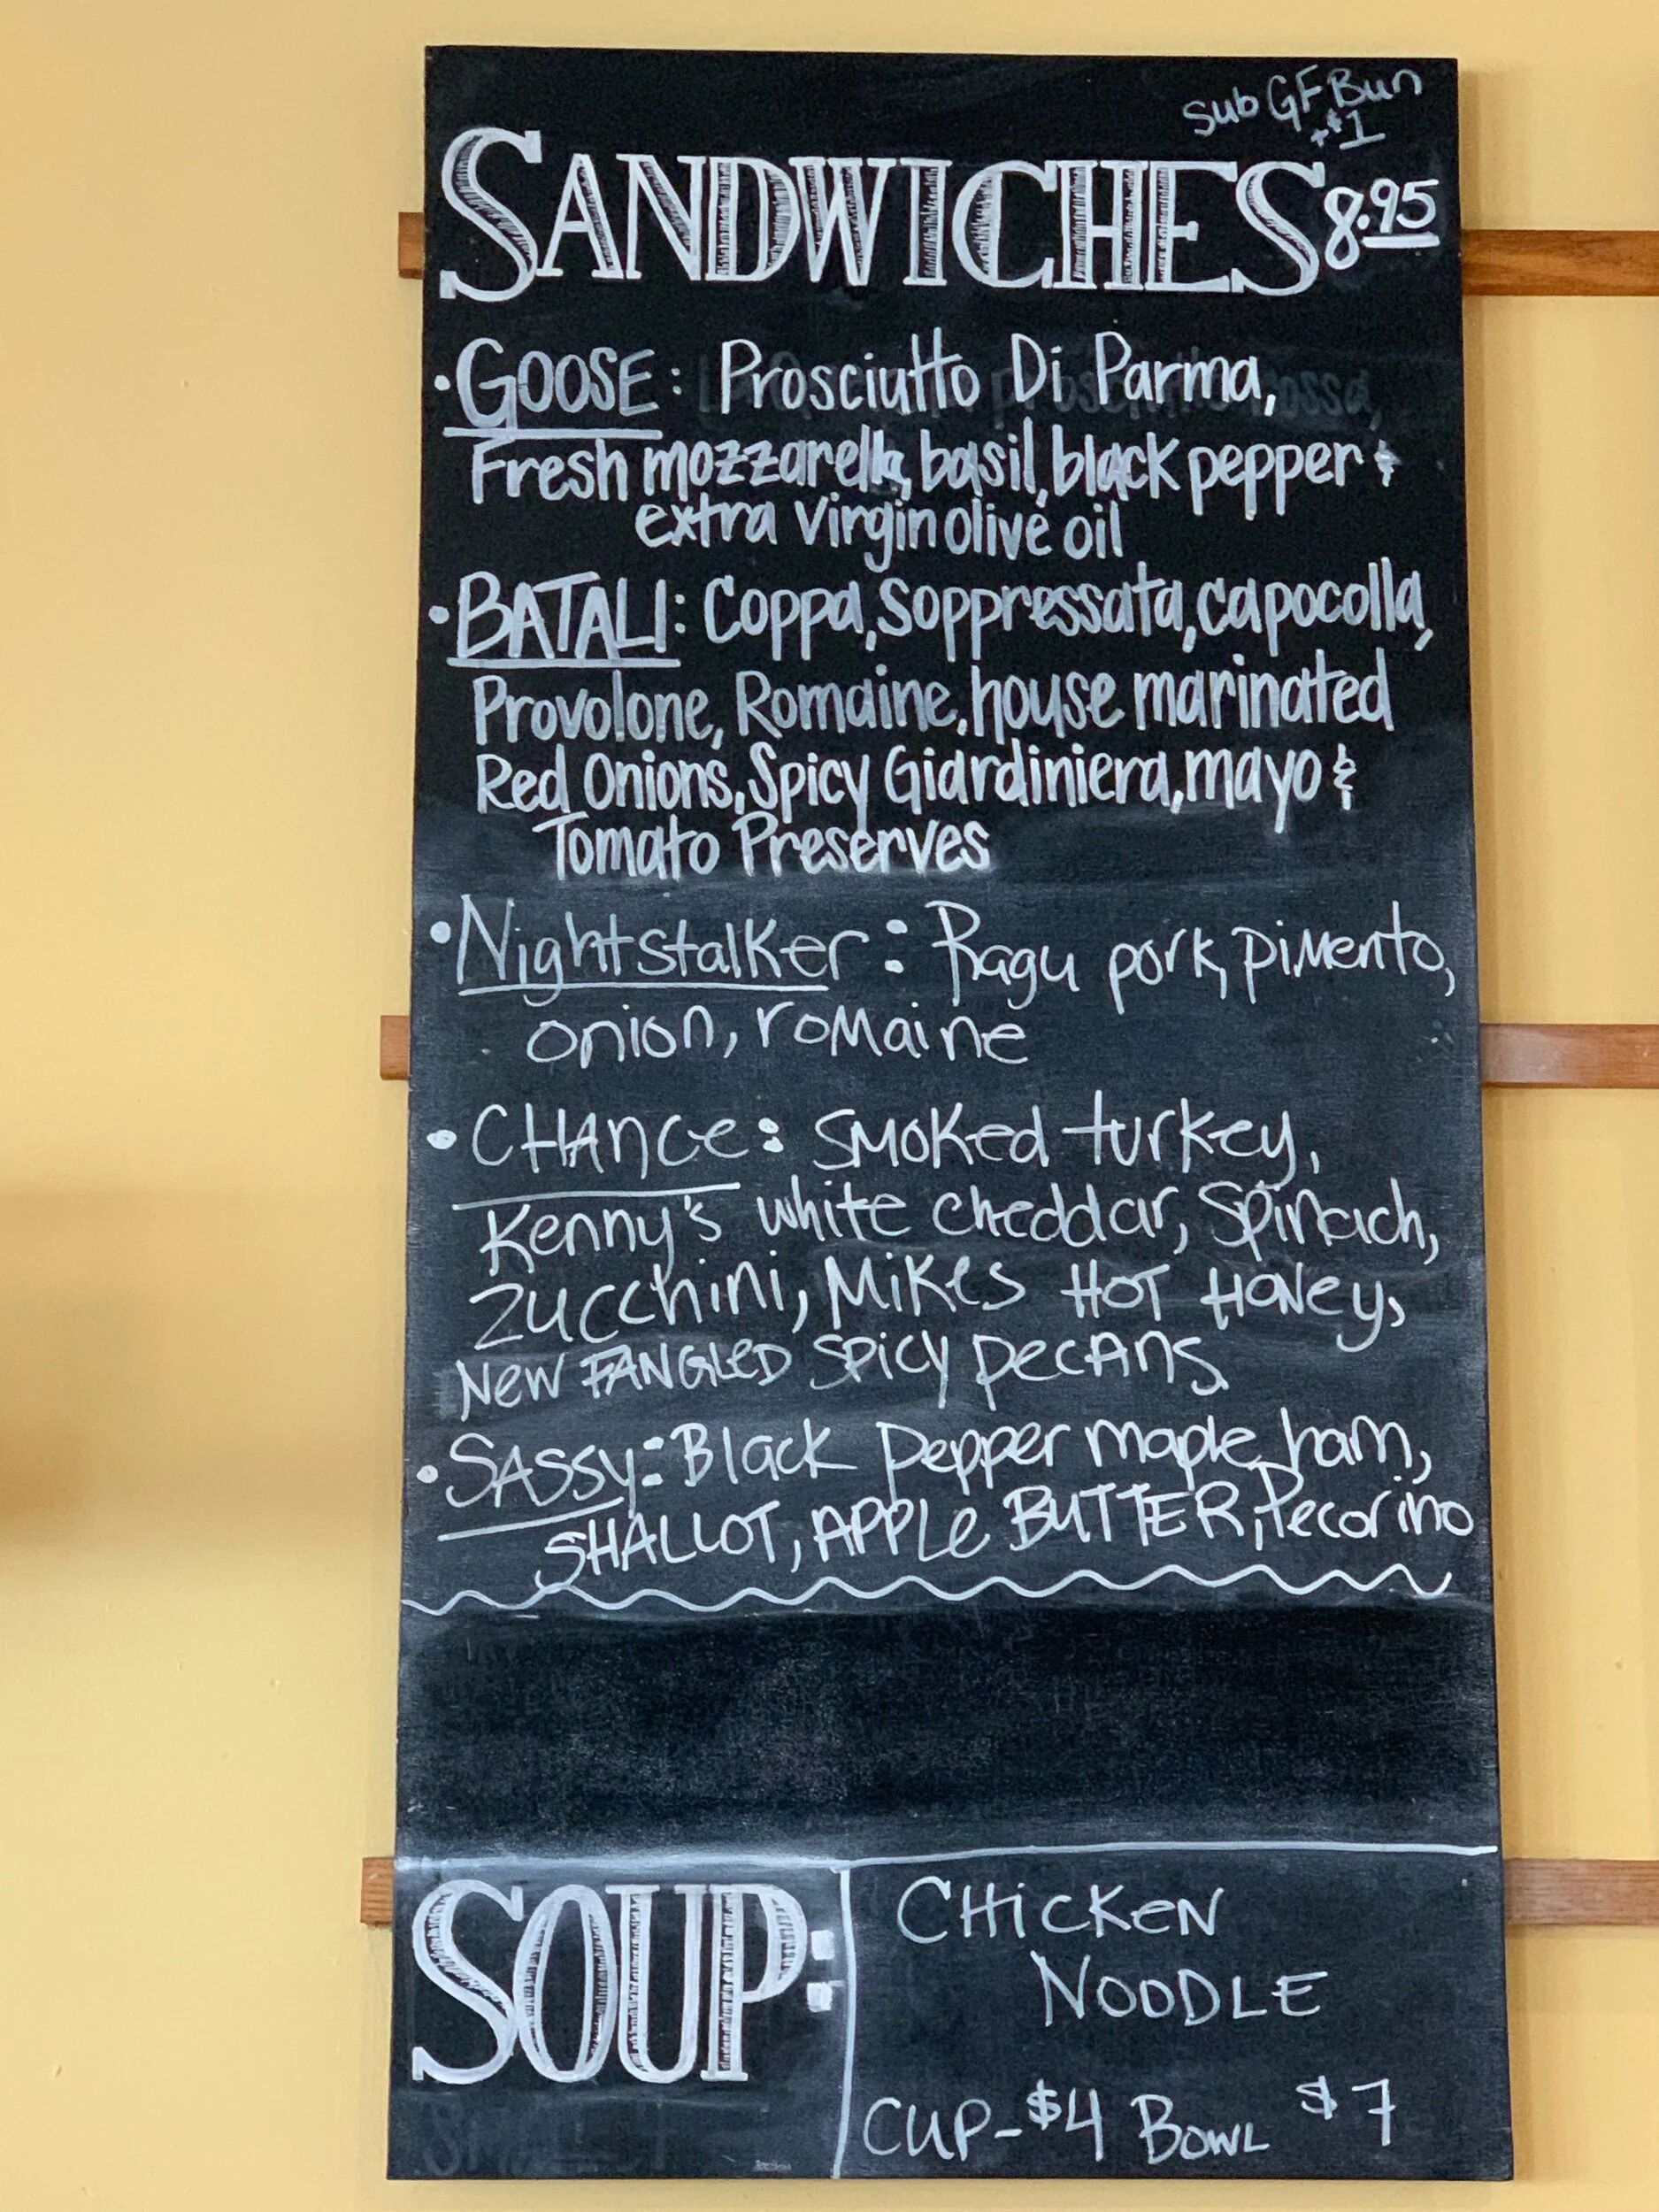 Sub GF Bun
+$1
SANDWICHES 8.95
• GOOSE: Prosciutto Di Parma,
Fresh mozzarella, basil, black pepper &
extra virgin olive oil
• BATALI: Coppa, Soppressata, capocolla,
Provolone, Romaine, house marinated
Red Onions, Spicy Giardiniera, mayo &
Tomato Preserves
• Nightstalker: Ragu pork, pimento,
onion, romaine
• CHANCE: SMOKED turkey,
Kenny's white cheddar, Spinach,
Zucchini, MIKES HOT HONEY,
NEW FANGLED SPICY PECANS
• SASSY: Black Pepper maple ham,
SHALLOT, APPLE BUTTER, Pecorino
SOUP: CHICKEN
NOODLE
CUP-$4 BOWL $7